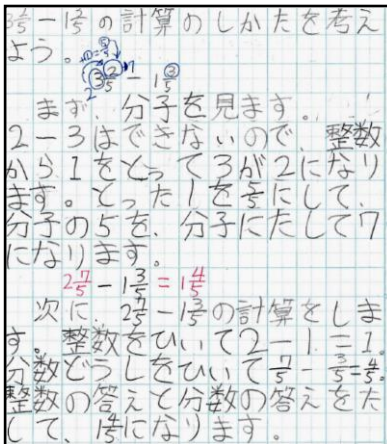 3 2/5 − 1 3/5 の計算のしかたを考え
よう。
3 2/5 − 1 3/5
まず、分子を見ます。
2−3はできないので、整数
から1をとって3が2になり
ます。とった1を5/5にして、
分子の5を、分子にたして7
になります。
2 7/5 − 1 3/5 = 1 4/5
次に、2 7/5 − 1 3/5 の計算をしま
す。整数をひいて2−1=1。
分数どうしをひいて7/5 − 3/5 = 4/5。
整数の答えと分数の答えをた
して、1 4/5 になります。